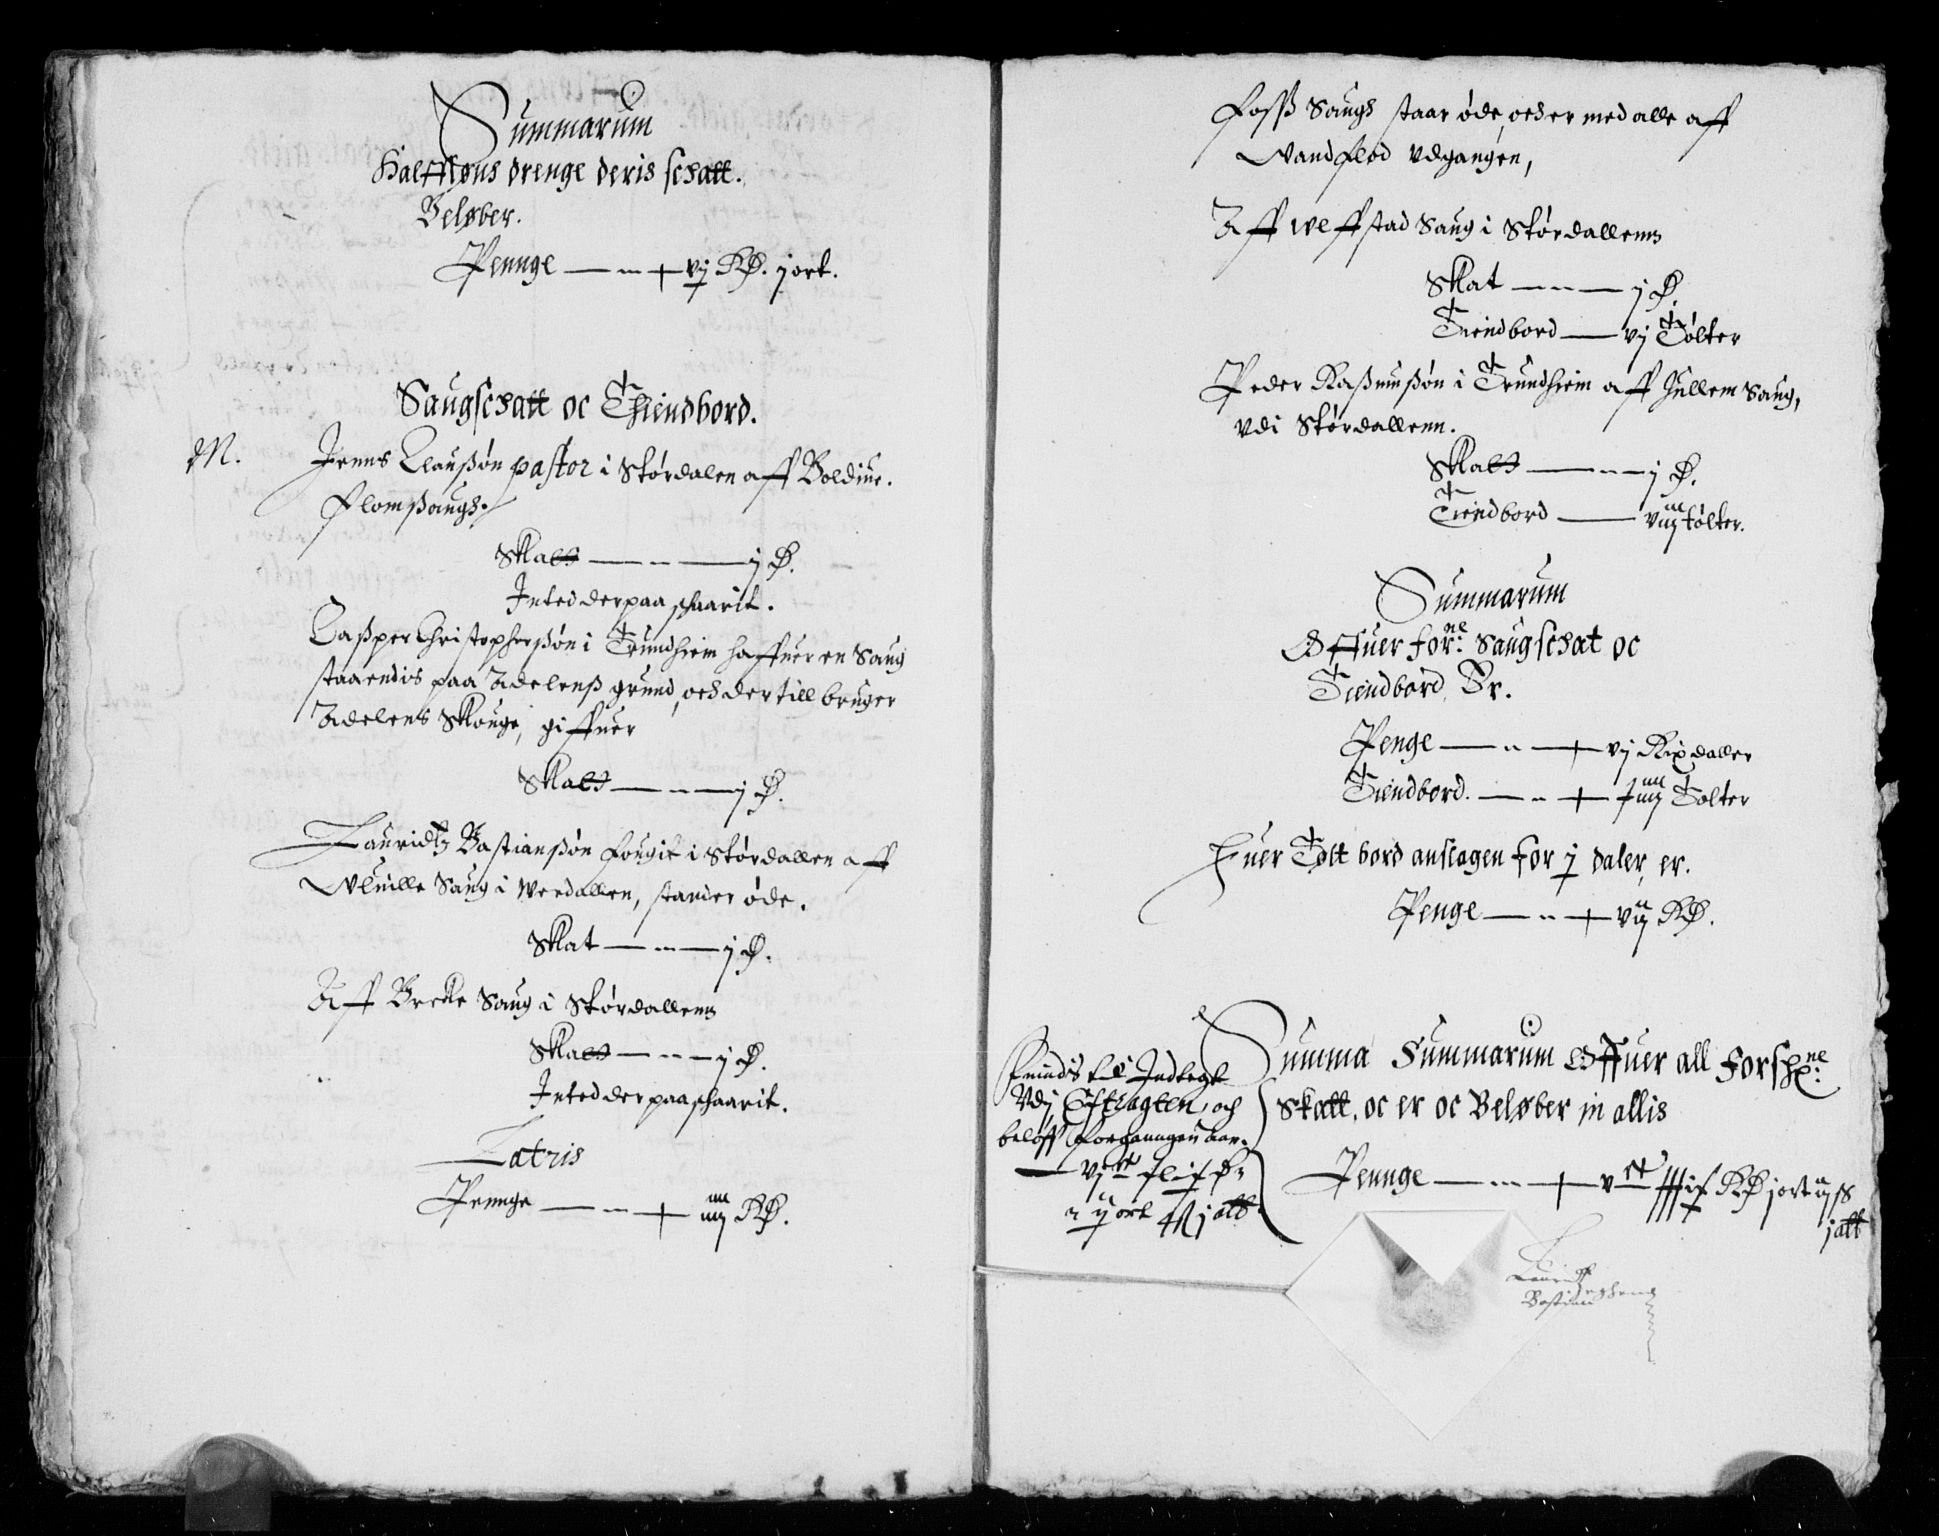 Summarum
Halffløns drenge deris schatt.
Beløber.
Pennge — vj Rd. j ort.
Saugschatt oc Thiendbord.
M. Jenns Clausøn pastor i Størdalen aff Boldiue.
flomsaugh.
Skatt — j d.
Inted derpaa schaarit.
Casper Christophersøn i Trundhiem haffuer en Saug
staaendis paa Adelens grund, och der till bruger
Adelens Skouge, giffuer
Skatt — j d.
Lauridtz Bastiansøn fougit i Størdallen aff
Vluille Saug i Werdallen, stander øde.
Skat — j d.
Aff Brecke Saug i Størdallenn
Skatt — j d.
Inted derpaa schaarit.
Latris
Pennge — iiij Rd.
Foss Saugh staar øde, och er med alle aff
Vandflod vdgangen,
Aff Weffstad Saug i Størdallenn
Skat — j d.
Tiendbord — vj Tølter
Peder Rasmusøn i Trundhiem aff Hullem Saug,
vdi Størdallenn.
Skatt — j d.
Tiendbord — viij tølter.
Summarum
Offuer forne: Saugschat oc
Tiendbord Er.
Penge — vj Rixdaller
Tiendbord. — xiiij Tolter
Huer Tolt bord anslagen for j daler, er.
Penge — vij Rd.
Summa Summarum Offuer all Forschne:
Skatt, oc er oc Beløber in allis
Pennge — vc Rd j ort
j alb
Indtegt
Vdj Extragten, och
beløff forganngen aar.
ort j alb
Lauridtz
Bastian